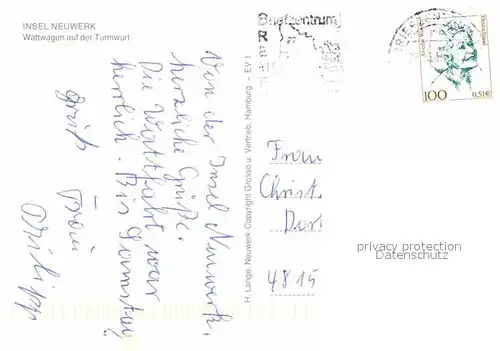 INSEL NEUWERK
Wattwagen auf der Turmwurt
Von der Insel Neuwerk,
herzliche Grüße.
Die Wattfahrt war
herrlich. Bis Samstag
Gruß Frau
Philipp
H. Lange, Neuwerk · Copyright Grosso u. Vertrieb, Hamburg – EV 1
Briefzentrum
R
Deutschland
100
0,51€
Frau
Christ
Dor
4815
privacy protection
Datenschutz